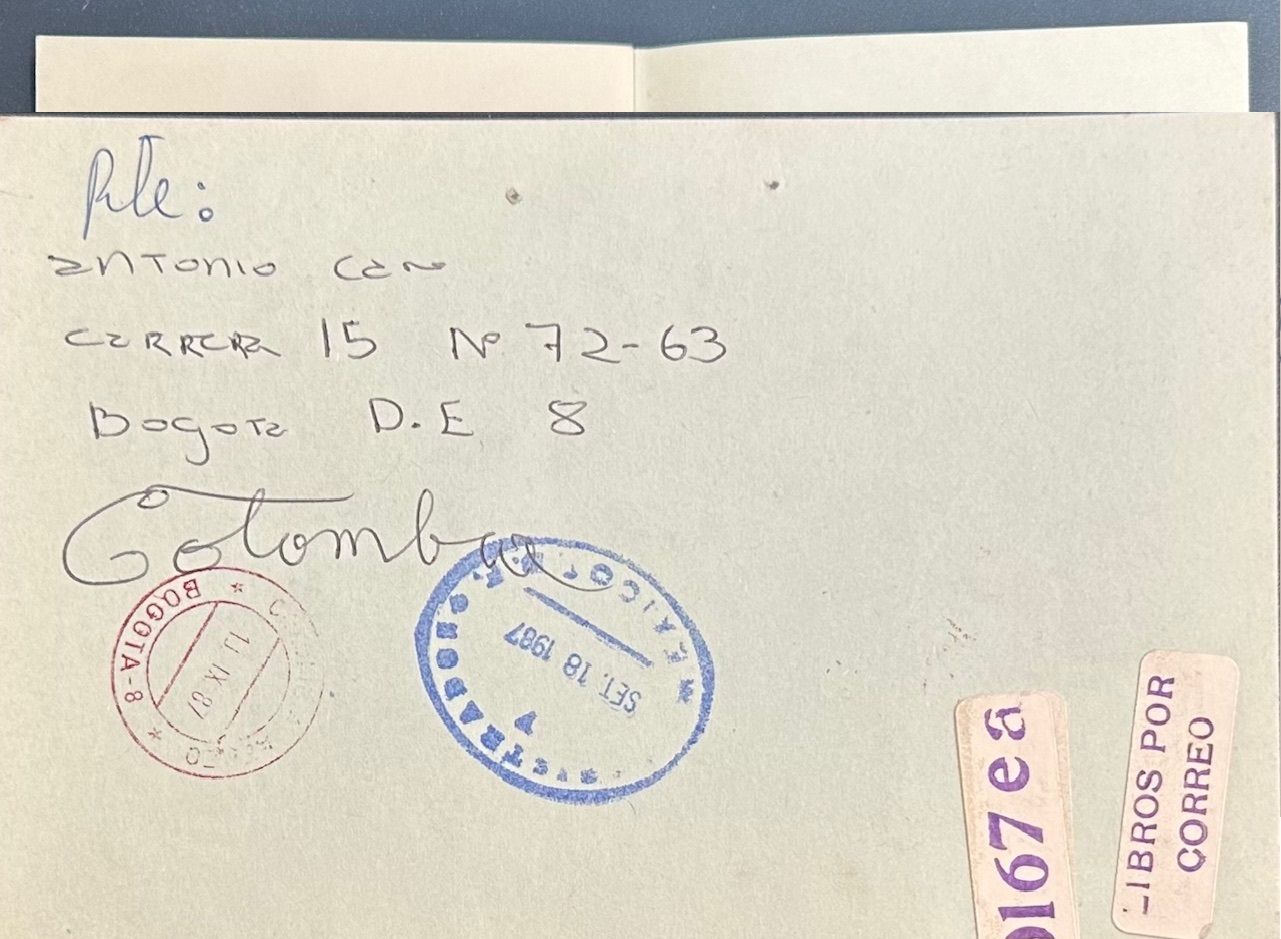 Rte:
antonio Caro
Carrera 15 Nº 72-63
Bogota D.E 8
Colombia
* BOGOTA-8 *
IX 87
SET. 18 1987
0167 ea
LIBROS POR
CORREO